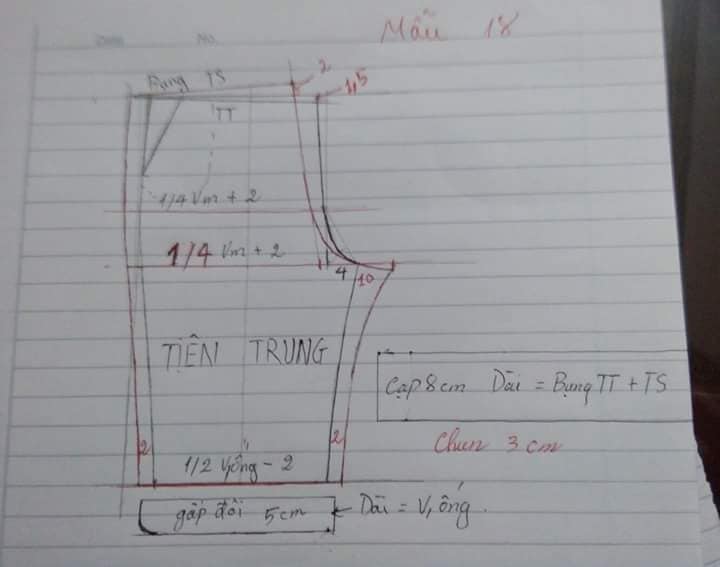 Mẫu 18
2
Bụng TS
1,5
TT
1/4 Vm + 2
1/4 Vm + 2
4 10
TIÊN TRUNG
Cạp 8cm Dài = Bụng TT + TS
Chun 3 cm
2 2
1/2 Vống - 2
gấp đôi 5cm Dài = V, ống.